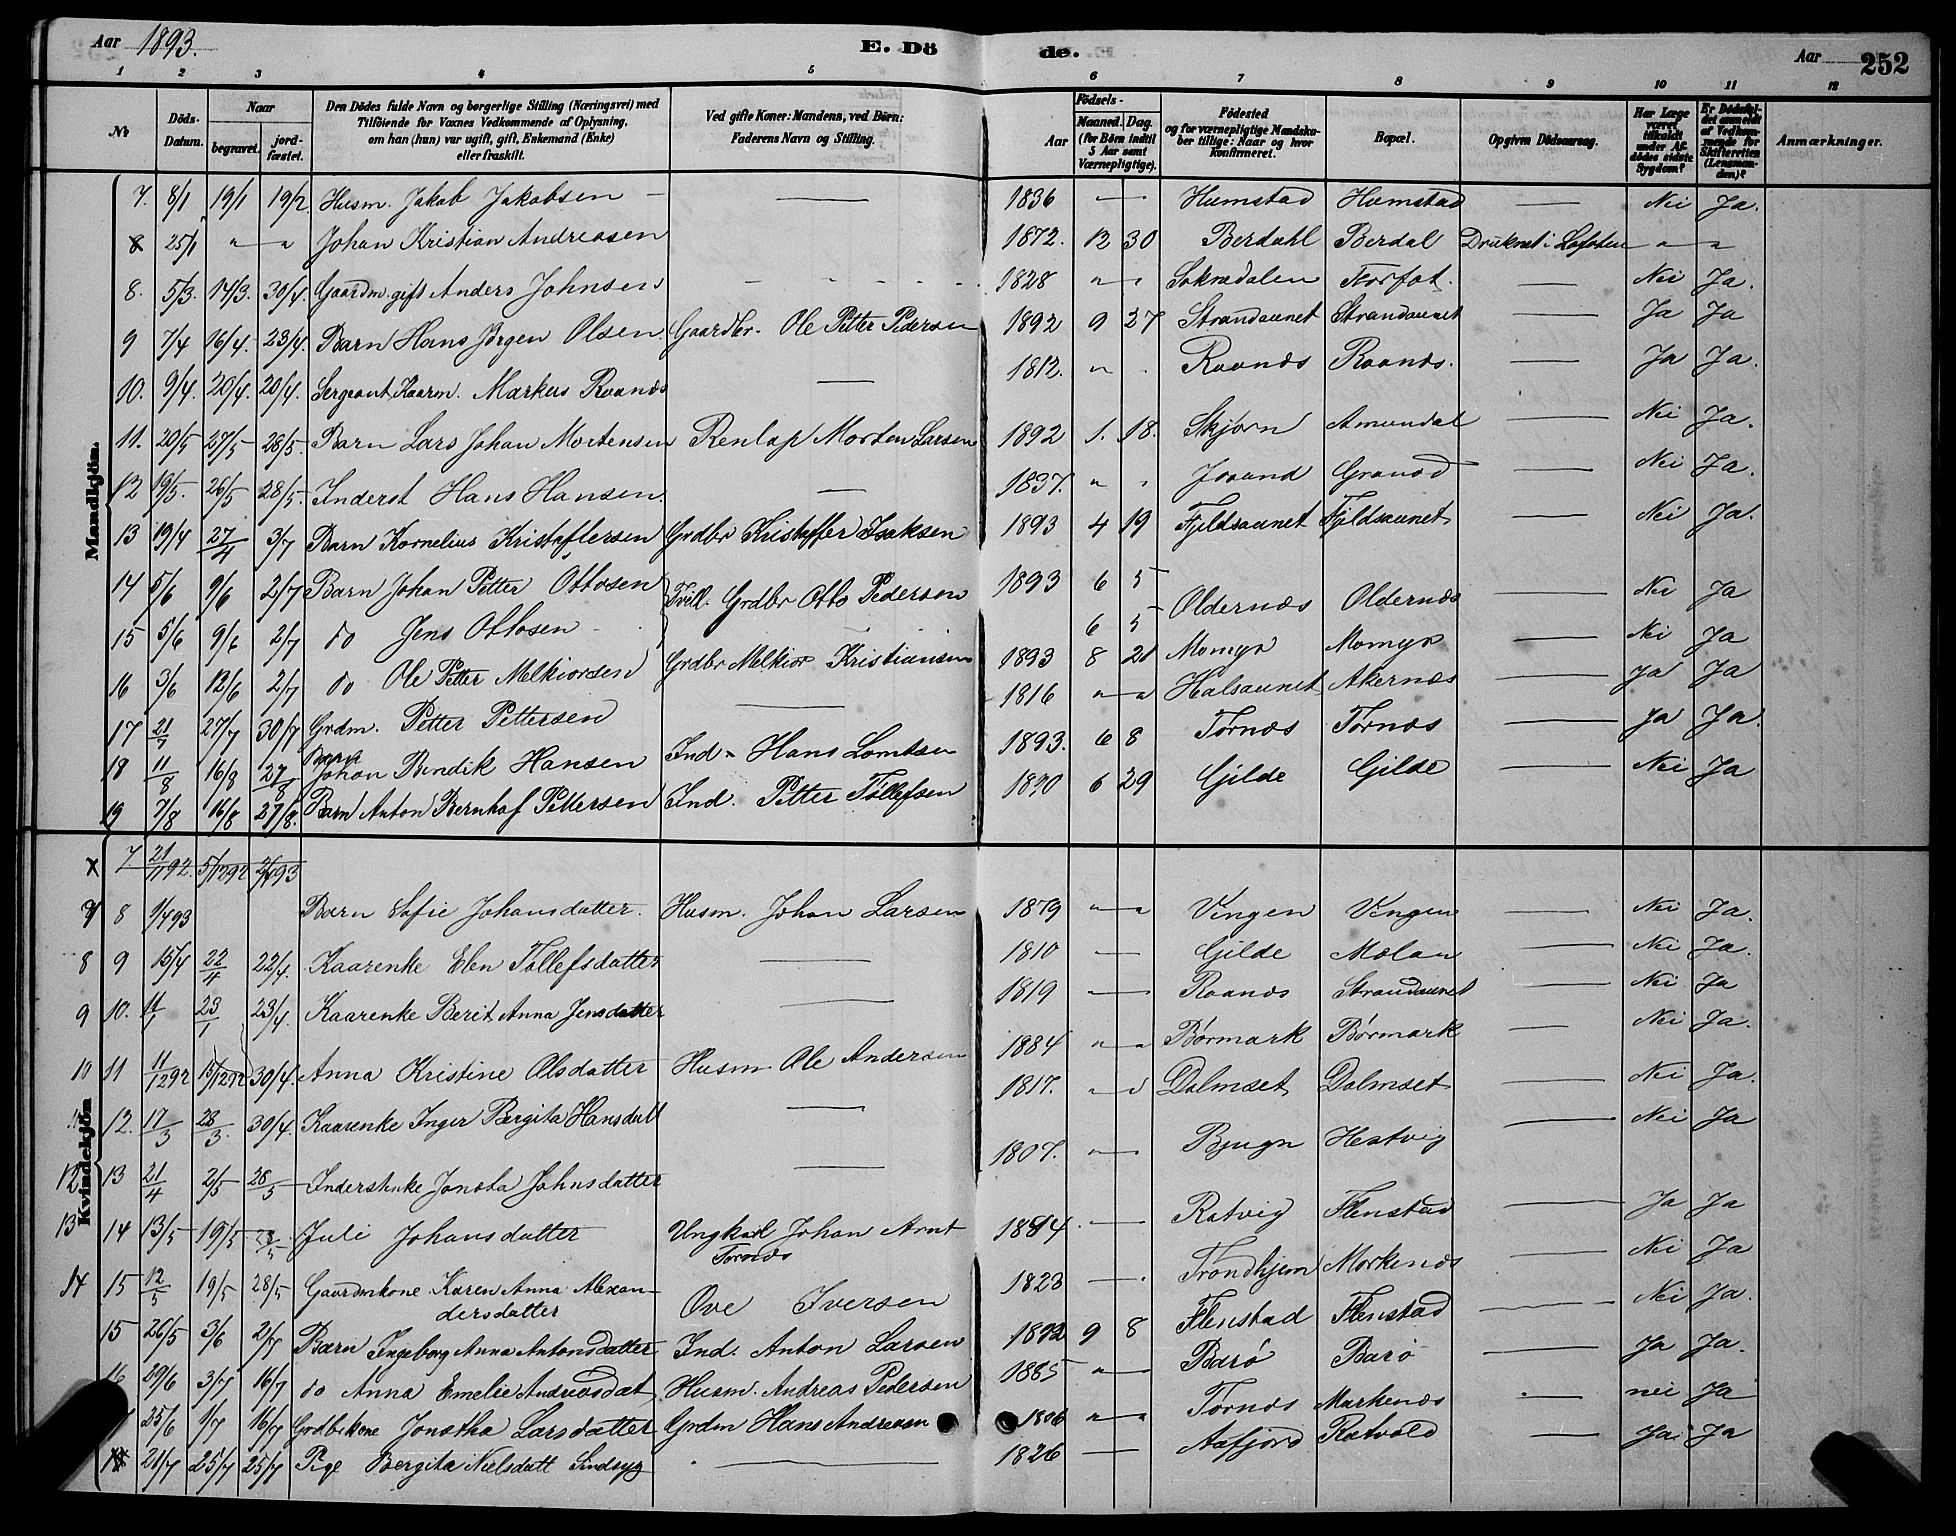 Aar 1893. E. Dö de. Aar 252
1 2 3 4 5 6 7 8 9 10 11 12
No Döds-Datum. Naar begravet. jord-fæstet. Den Dödes fulde Navn og borgerlige Stilling (Næringsvei) med Tilföiende for Voxnes Vedkommende af Oplysning, om han (hun) var ugift, gift, Enkemand (Enke) eller fraskilt. Ved gifte Koner: Mandens, ved Börn: Faderens Navn og Stilling. Födsels- Aar Maaned. Dag. (for Börn indtil 5 Aar samt Værnepligtige). Födested og for værnepligtige Mandskaber tillige: Naar og hvor konfirmeret. Bopæl. Opgiven Dödsaarsag. Har Læge været tilkaldt under Afdödes sidste Sygdom? Er Dödsfaldet anmeldt af Vedkommende for Skifteretten (Lensmanden)? Anmærkninger.
Mandkjön.
7. 8/1 19/1 19/2 Husm. Jakob Jakobsen — 1836 — Humstad Humstad — Nei Ja.
8 25/1 " " Johan Kristian Andreasen 1872. 12 30 Berdahl Berdal Druknet i Lofoten " "
8. 5/3. 14/3. 30/4. Gaardm. gift Anders Johnsen 1828 " " Sakredalen Storfot — Nei Ja.
9 7/4 16/4. 23/4. Barn Hans Jørgen Olsen. Gaardbr. Ole Petter Pedersen 1892 9 27 Strandaunet Strandaunet — Ja Ja
10. 9/4. 20/4. 20/4. Sergeant, Kaarm. Markus Raanæs — 1812. " Raanæs Raanæs. — Ja Ja.
11. 20/5 27/5 28/5. Barn Lars Johan Mortensen Renlap Morten Larsen 1892 1. 18. Skjørn Amundal — Nei Ja.
12 19/5. 26/5 28/5. Inderst Hans Hansen. — 1837. " " Josund Granød — Nei Ja.
13 19/4 27/4 3/7 Barn Kornelius Kristoffersen Grdbr Kristoffer Isaksen 1893 4 19 Fjeldsaunet Fjeldsaunet — Nei Ja.
14 5/6 9/6 2/7 Barn Johan Petter Ottosen Tvill. Grdbr Otto Pedersen 1893 6 5 Oldernæs Oldernæs — Nei Ja
15 5/6 9/6 2/7 do Jens Ottosen 6 5
16 3/6 12/6 2/7 do Ole Petter Melkiorsen Grdbr Melkior Kristiansen 1893 8 21 Momyr Momyr — Nei Ja
17 21/7 27/7 30/7 Grdm. Petter Pettersen — 1816 " " Halsaunet Akernæs Ja Ja
18 11/8 16/8 27/8 Barn Johan Bendik Hansen Ind. Hans Lorntsen 1893. 6 8 Tørnæs Tørnæs — Ja Ja.
19 7/8 16/8 27/8. Barn Anton Bernhof Pettersen Ind. Petter Tollefsen 1890 6 29 Gjlde Gjlde — Nei Ja
Kvindekjön
x 7. 21/11 92. 5/12 92 2/4 93
8 1/4 93 Barn Sofie Johansdatter. Husm. Johan Larsen 1879 " " Vingen Vingen — Nei Ja.
8 9 15/4 22/4 22/4. Kaarenke Elen Tollefsdatter — 1810 — Gjlde Mælan — Nei Ja.
9 10. 11/1 23/1 23/4. Kaarenke Berit Anna Jensdatter — 1819 — Raanæs Strandaunet — Nei Ja
10 11 11/12 92 15/12 92 30/4. Anna Kristine Olsdatter Husm. Ole Andersen 1884 " " Børmark Børmark — Nei Ja.
12. 17/3 28/3. 30/4. Kaarenke Inger Bergita Hansdatt — 1817. " " Dalmset Dalmset — Nei Ja.
12 13 21/4 2/5 28/5 Inderstenke Jonæta Johnsdatter — 1807. — Bjugn Hestvig — Nei Ja
13 14 13/5 19/5 28/5 Juli Johansdatter Ungkarl Johan Arnt Tørnæs 1884. — Ratvig Flenstad — Ja Ja
14 15 12/5 19/5 28/5 Gaardmkone Karen Anna Alexandersdatter Ove Iversen 1823 — Trondhjem Morkenæs — Nei Ja
15 26/5 3/6 2/7 Barn Ingeborg Anna Antonsdatter Ind. Anton Larsen 1892 9 8 Flenstad Flenstad — Nei Ja.
16 29/6 3/7 16/7 do Anna Emelie Andreasdat Husm. Andreas Pedersen 1885 " Barø Barø — Ja Ja.
25/6 1/7 16/7 Grdbrkone Jonetha Larsdatter Grdm Hans Andreasen 1806 " " Tørnæs Markenæs — nei Ja
21/7 25/7 25/7 Pige Bergita Nielsdatt Sindsyg — 1826 — Aafjord Ratvold — Ja Ja